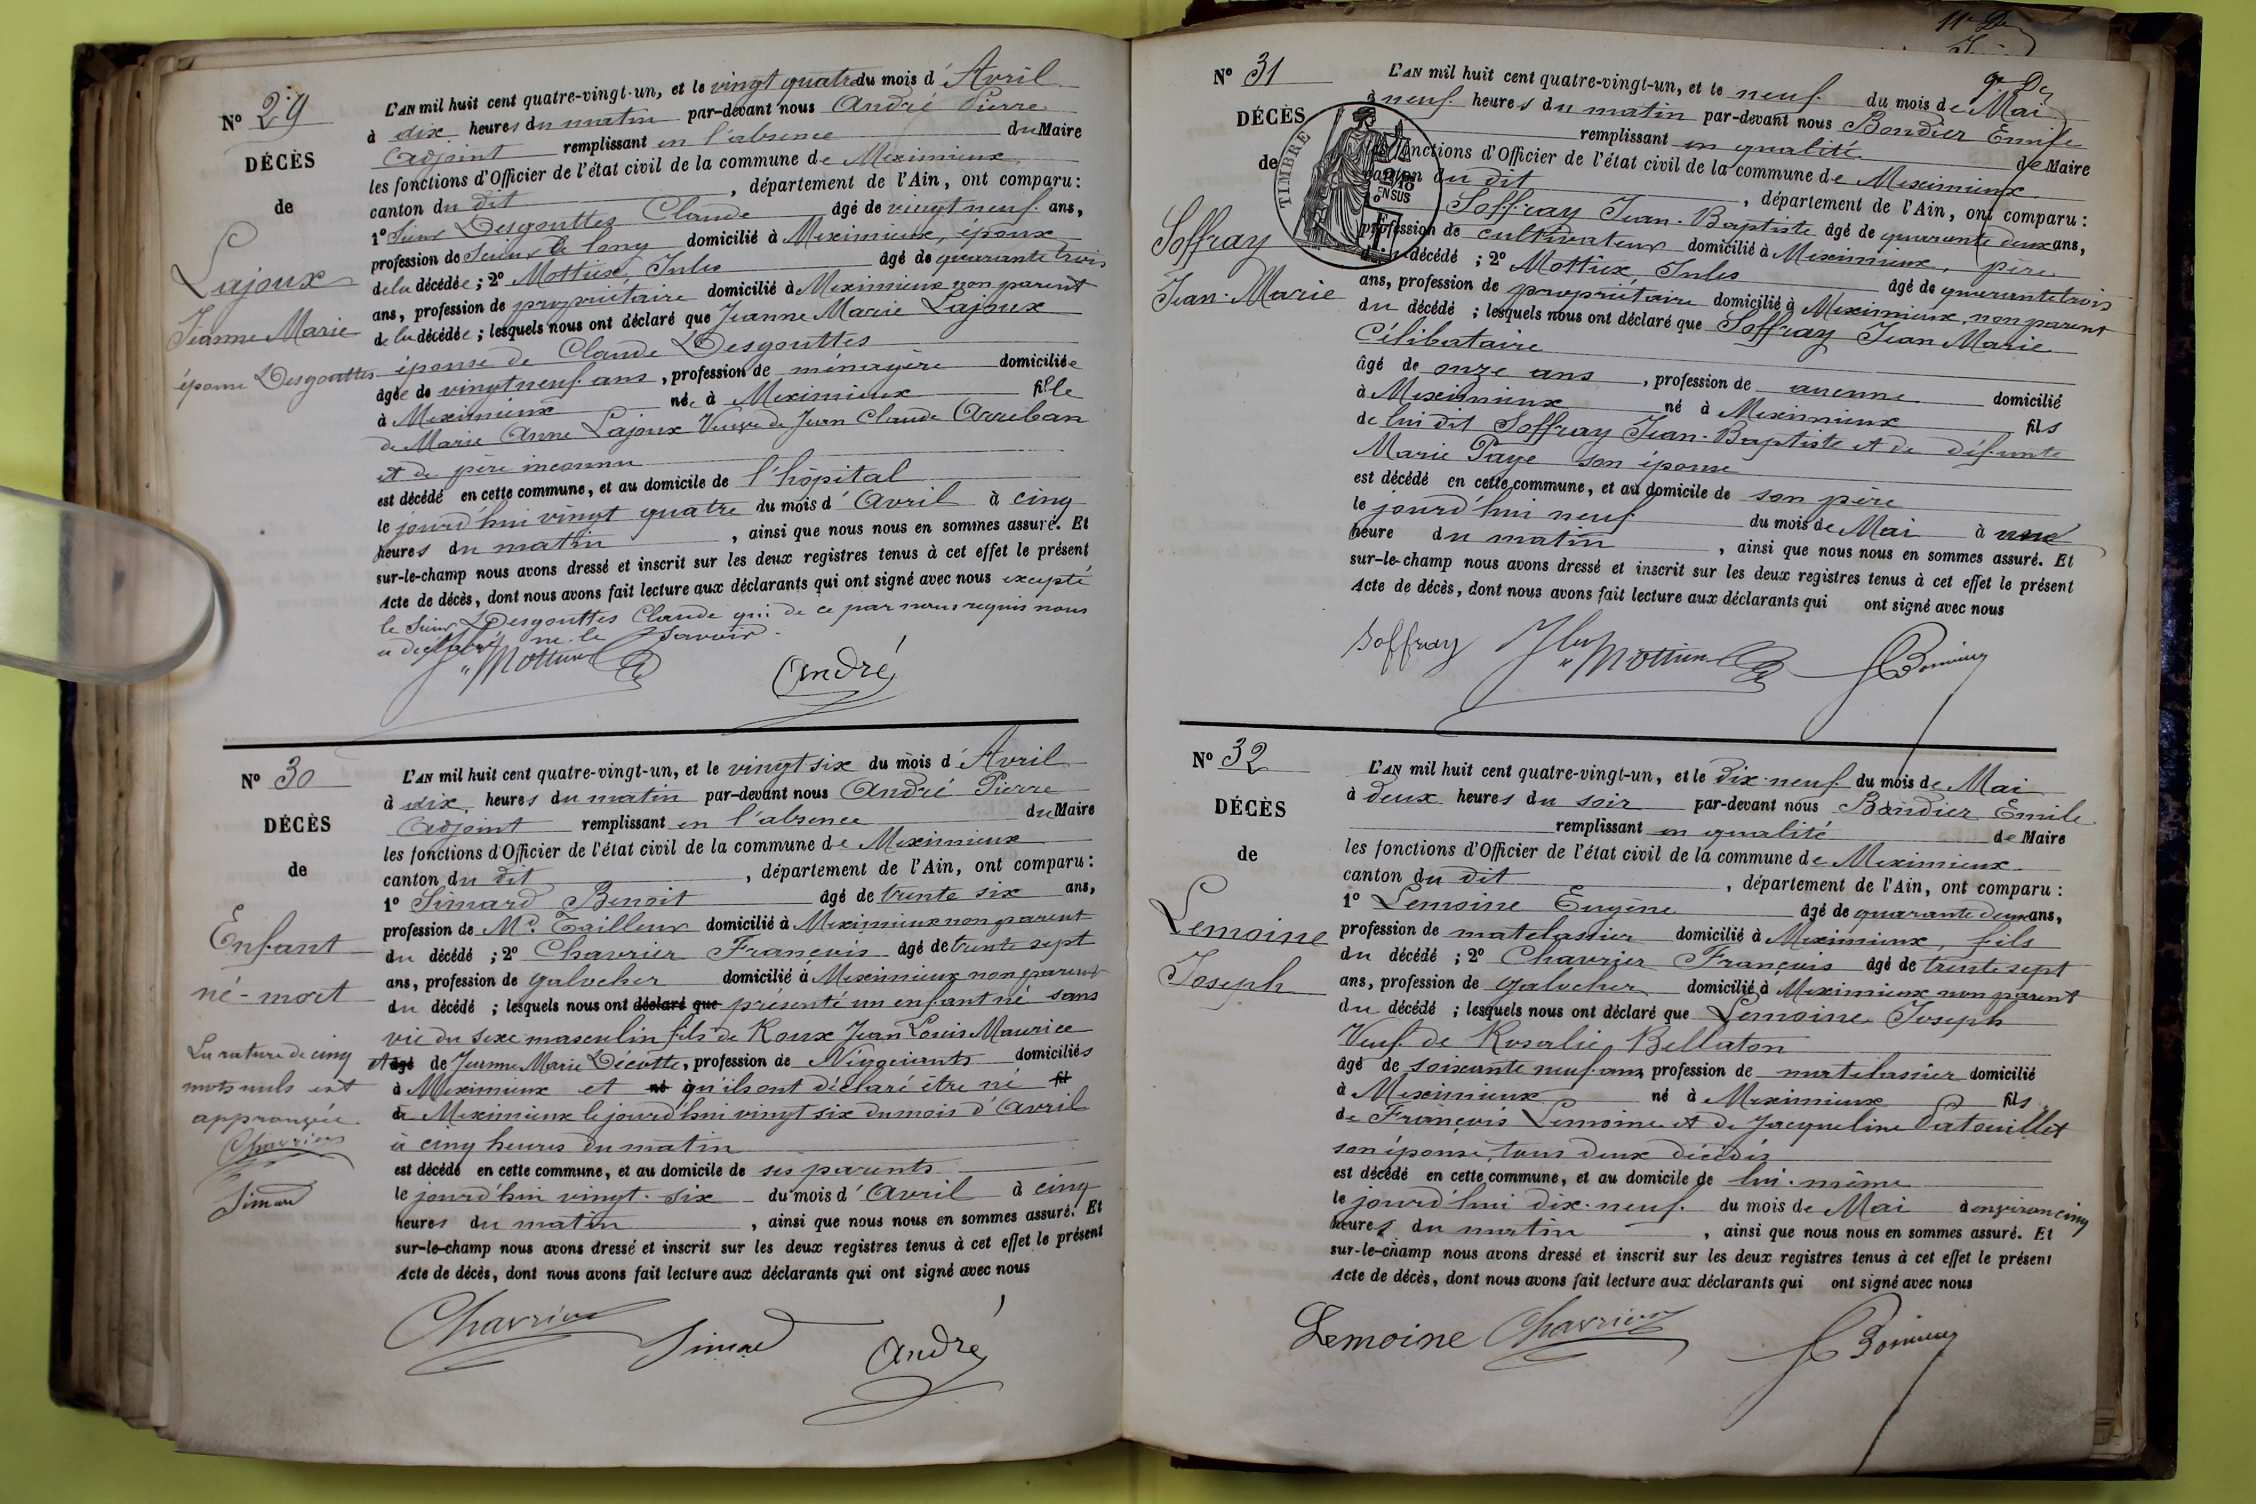 N° 29
DÉCÈS
de
Lajoux
Jeanne Marie
épouse Desgouttes
L'AN mil huit cent quatre-vingt-un, et le vingt quatre du mois d'Avril
à dix heures du matin par-devant nous André Pierre
Adjoint remplissant en l'absence du Maire
les fonctions d'Officier de l'état civil de la commune de Meximieux
canton du dit , département de l'Ain, ont comparu :
1° Sieur Desgouttes Claude âgé de vingt neuf ans,
profession de Scieur de long domicilié à Meximieux, époux
de la décédée ; 2° Jules âgé de quarante trois
ans, profession de propriétaire domicilié à Meximieux non parent
de la décédée ; lesquels nous ont déclaré que Jeanne Marie Lajoux
épouse de Claude Desgouttes
âgée de vingt neuf ans , profession de ménagère domiciliée
à Meximieux née à Meximieux fille
de Marie Anne Lajoux Veuve de Jean Claude
et de père inconnu
est décédé en cette commune, et au domicile de l'hôpital
le jourd'hui vingt quatre du mois d'Avril à cinq
heures du matin , ainsi que nous nous en sommes assuré. Et
sur-le-champ nous avons dressé et inscrit sur les deux registres tenus à cet effet le présent
Acte de décès, dont nous avons fait lecture aux déclarants qui ont signé avec nous excepté
le Sieur Desgouttes Claude qui de ce par nous requis nous
a déclaré ne le savoir.
André
N° 30
DÉCÈS
de
Enfant
né-mort
La rature de cinq
mots nuls est
approuvée
Chavrier
Simard
L'AN mil huit cent quatre-vingt-un, et le vingt six du mois d'Avril
à dix heures du matin par-devant nous André Pierre
Adjoint remplissant en l'absence du Maire
les fonctions d'Officier de l'état civil de la commune de Meximieux
canton du dit , département de l'Ain, ont comparu :
1° Simard Benoit âgé de trente six ans,
profession de Md. Tailleur domicilié à Meximieux non parent
du décédé ; 2° Chavrier François âgé de trente sept
ans, profession de galocher domicilié à Meximieux non parent
du décédé ; lesquels nous ont déclaré que présenté un enfant né sans
vie du sexe masculin fils de Roux Jean Louis Maurice
et âgé de Jeanne Marie Décotte, profession de Négociants domiciliés
à Meximieux et né qu'ils ont déclaré être né fil
à Meximieux le jourd'hui vingt six du mois d'Avril
à cinq heures du matin
est décédé en cette commune, et au domicile de ses parents
le jourd'hui vingt-six du mois d'Avril à cinq
heures du matin , ainsi que nous nous en sommes assuré. Et
sur-le-champ nous avons dressé et inscrit sur les deux registres tenus à cet effet le présent
Acte de décès, dont nous avons fait lecture aux déclarants qui ont signé avec nous
Chavrier Simard André
N° 31
DÉCÈS
de
Soffray
Jean-Marie
TIMBRE
L'AN mil huit cent quatre-vingt-un, et le neuf du mois de Mai
à neuf heures du matin par-devant nous Emile
remplissant en qualité de Maire
fonctions d'Officier de l'état civil de la commune de Meximieux
canton du dit , département de l'Ain, ont comparu :
Soffray Jean-Baptiste âgé de quarante deux ans,
profession de cultivateur domicilié à Meximieux, père
décédé ; 2° Jules âgé de quarante trois
ans, profession de propriétaire domicilié à Meximieux, non parent
du décédé ; lesquels nous ont déclaré que Soffray Jean Marie
Célibataire
âgé de onze ans , profession de aucune domicilié
à Meximieux né à Meximieux fils
de lui dit Soffray Jean-Baptiste et de défunte
Marie Paye son épouse
est décédé en cette commune, et au domicile de son père
le jourd'hui neuf du mois de Mai à une
heure du matin , ainsi que nous nous en sommes assuré. Et
sur-le-champ nous avons dressé et inscrit sur les deux registres tenus à cet effet le présent
Acte de décès, dont nous avons fait lecture aux déclarants qui ont signé avec nous
Soffray
N° 32
DÉCÈS
de
Lemoine
Joseph
L'AN mil huit cent quatre-vingt-un, et le dix-neuf du mois de Mai
à deux heures du soir par-devant nous Emile
remplissant en qualité de Maire
les fonctions d'Officier de l'état civil de la commune de Meximieux
canton du dit , département de l'Ain, ont comparu :
1° Lemoine Eugène âgé de quarante deux ans,
profession de matelassier domicilié à Meximieux, fils
du décédé ; 2° Chavrier François âgé de trente sept
ans, profession de galocher domicilié à Meximieux non parent
du décédé ; lesquels nous ont déclaré que Lemoine Joseph
Veuf de Rosalie Bellaton
âgé de soixante neuf ans, profession de matelassier domicilié
à Meximieux né à Meximieux fils
de François Lemoine et de Jacqueline Patouillet
son épouse, tous deux décédés
est décédé en cette commune, et au domicile de lui-même
le jourd'hui dix-neuf du mois de Mai à environ cinq
heures du matin , ainsi que nous nous en sommes assuré. Et
sur-le-champ nous avons dressé et inscrit sur les deux registres tenus à cet effet le présent
Acte de décès, dont nous avons fait lecture aux déclarants qui ont signé avec nous
Lemoine Chavrier